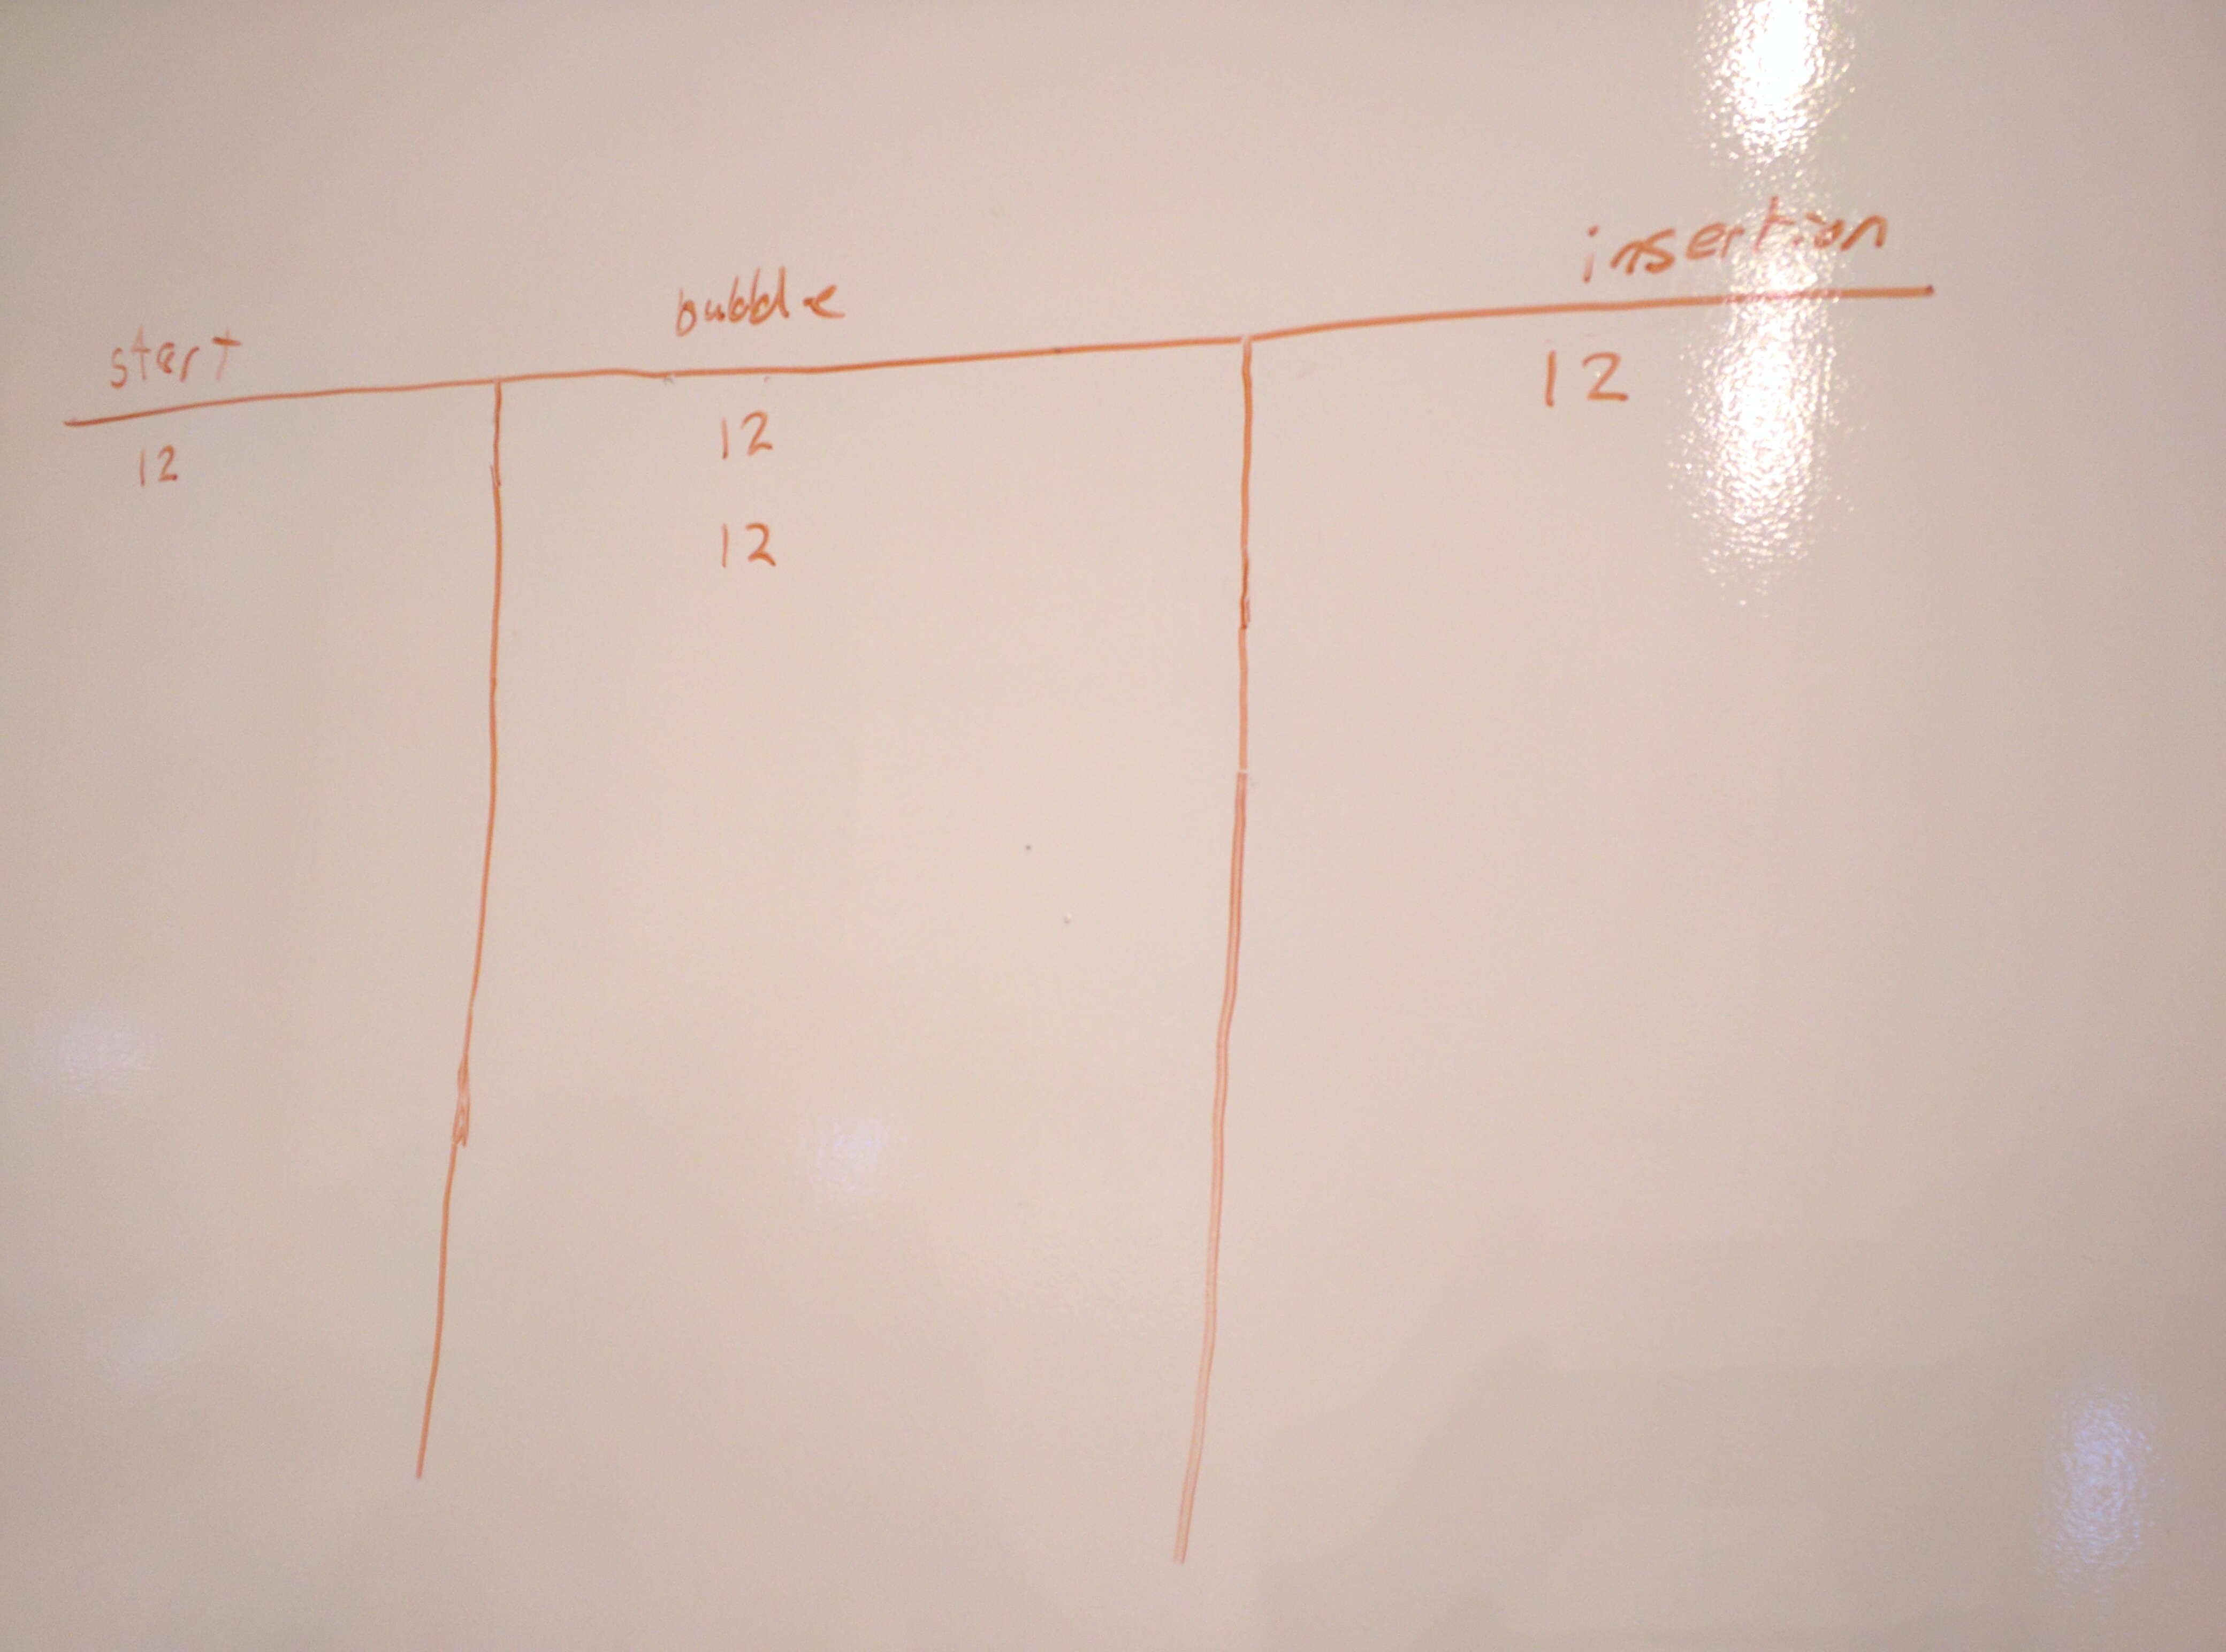 start bubble insertion
12 12 12
12